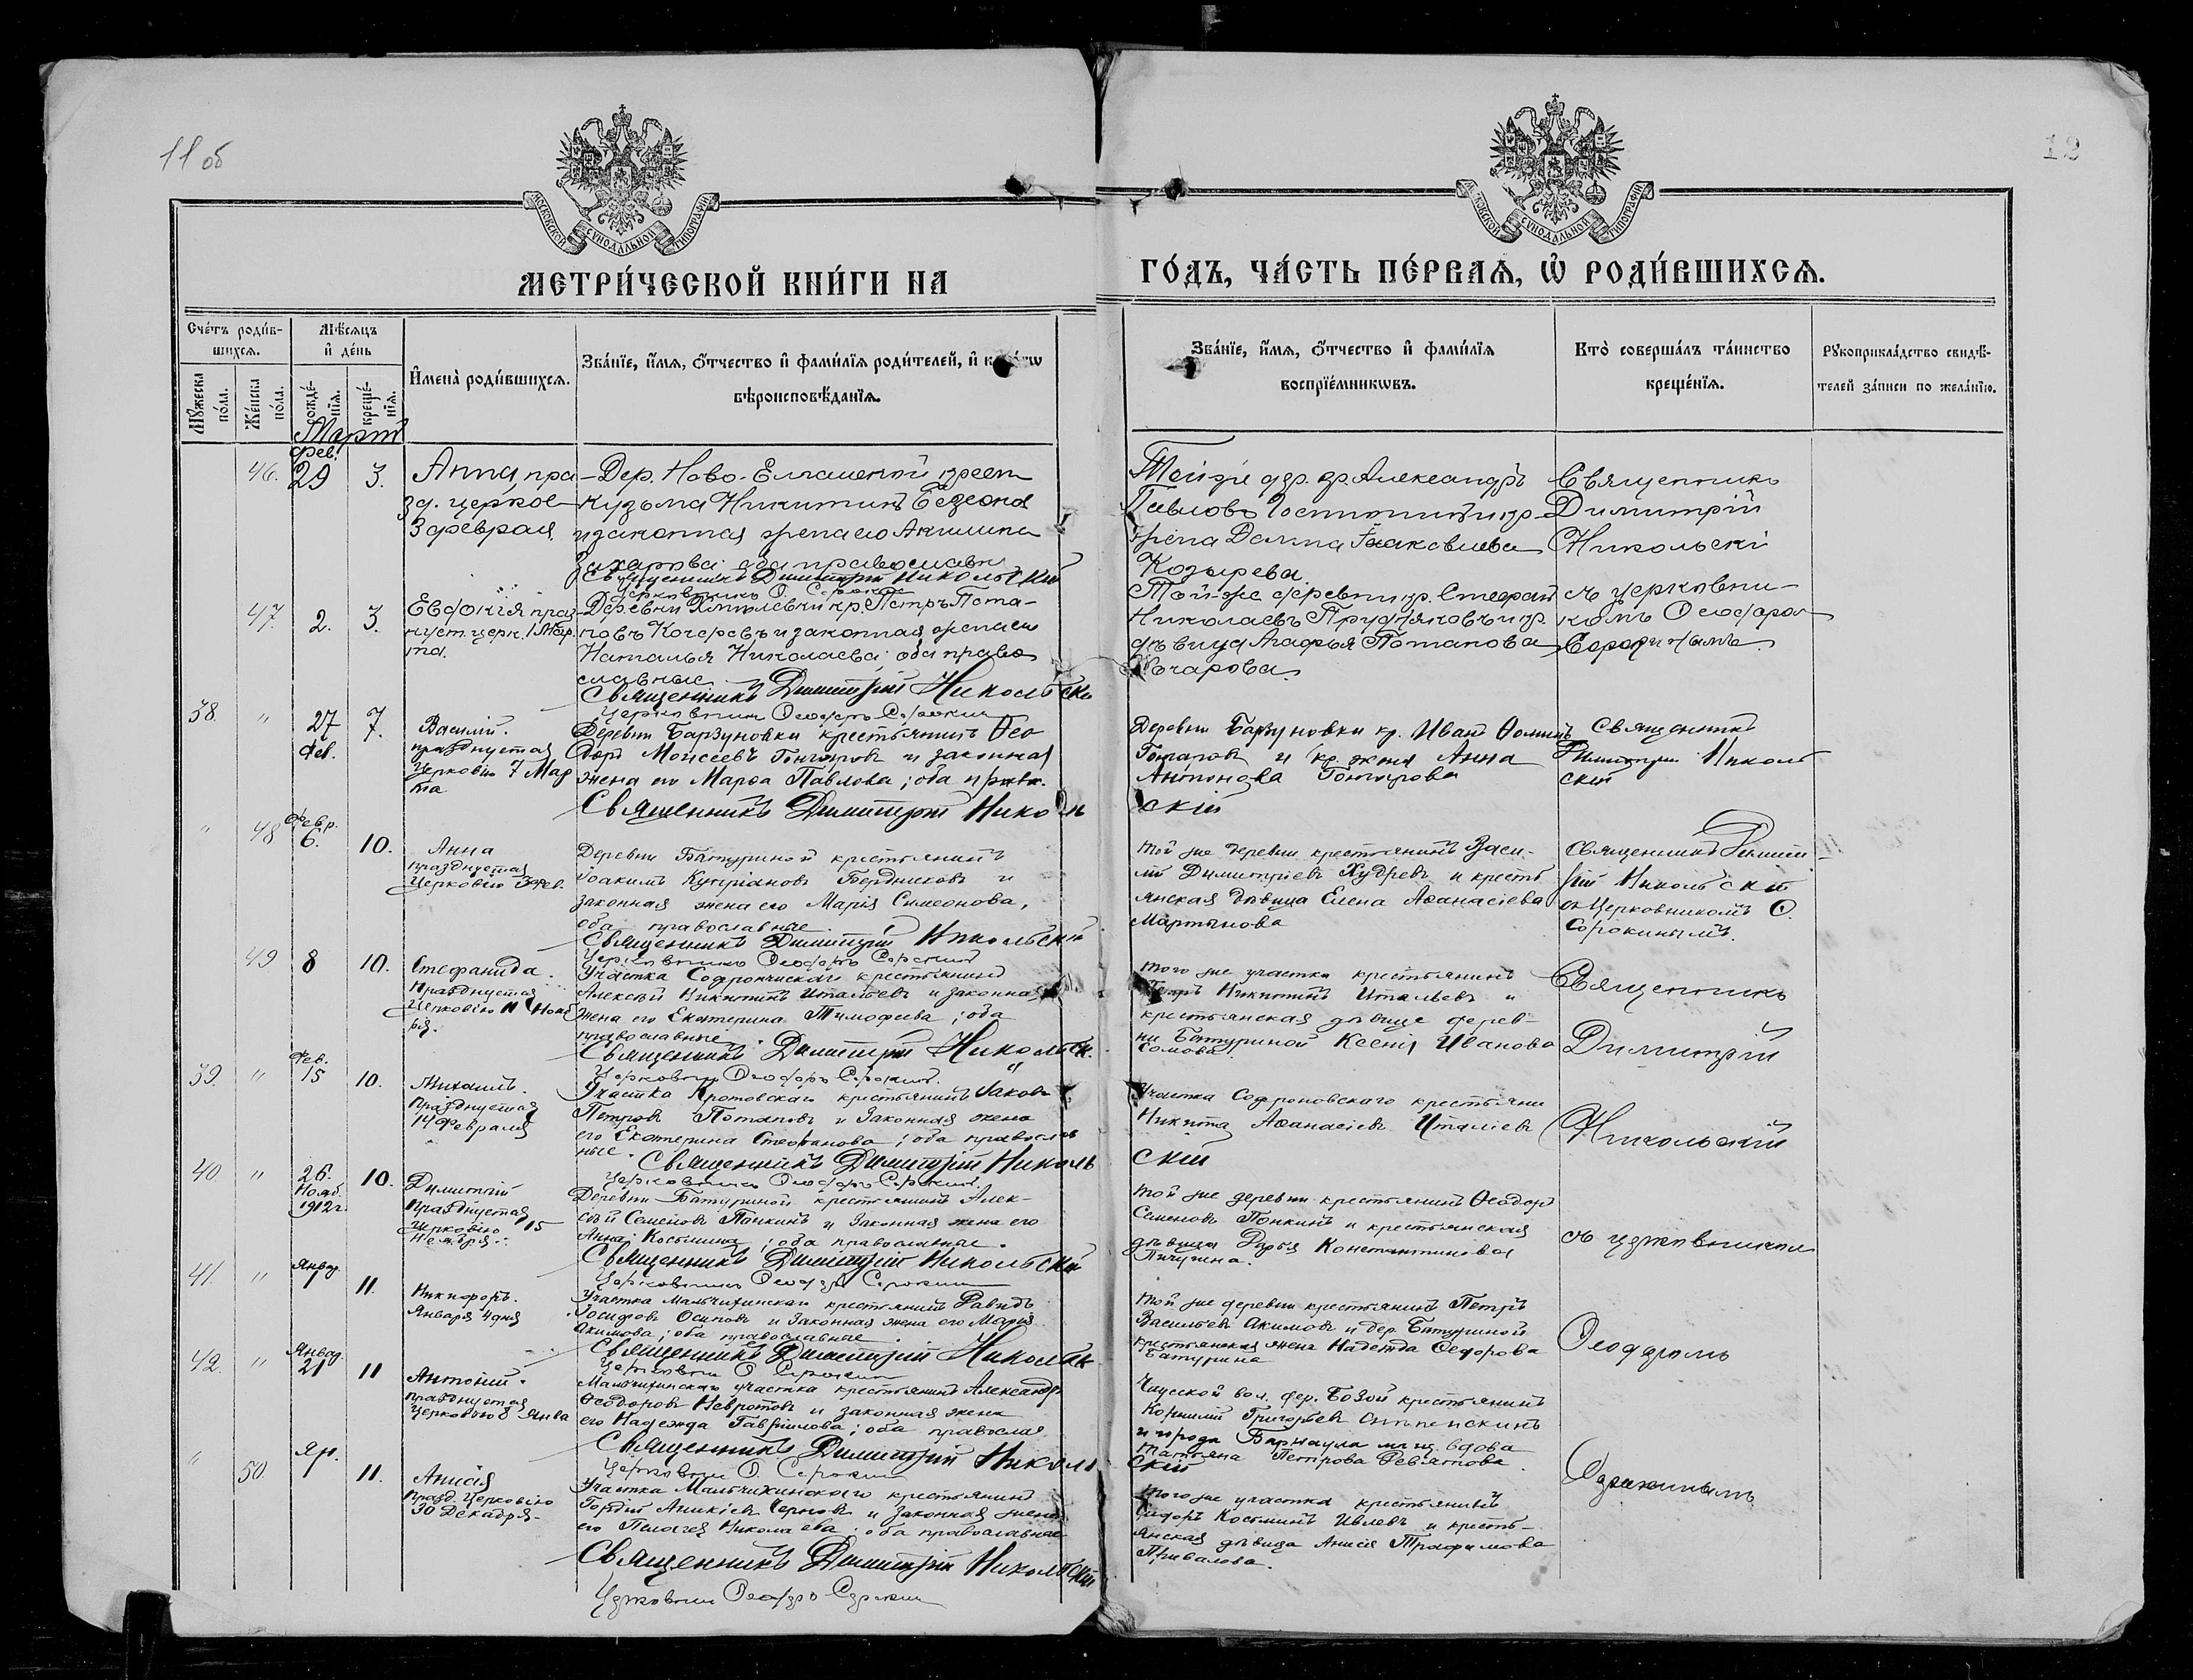 11 об
12
МОСКОВСКОЙ СѴНОДАЛЬНОЙ ТИПОГРАФІИ
МОСКОВСКОЙ СѴНОДАЛЬНОЙ ТИПОГРАФІИ
МЕТРИ́ЧЕСКОЙ КНИ́ГИ НА
ГО́ДЪ, ЧА́СТЬ ПЕ́РВАѦ, Ѡ҆ РОДИ́ВШИХСѦ.
Сче́тъ роди́в-
шихсѧ.
Мѣ́сѧцъ
и҆ де́нь
Мꙋ́жеска
по́ла.
Же́нска
по́ла.
рожде́-
нїѧ.
креще́-
нїѧ.
И҆мена̀ роди́вшихсѧ.
Зва́нїе, и҆́мѧ, ѻ҆́тчество и҆ фами́лїѧ роди́телей, и҆
вѣроисповѣ́данїѧ.
Зва́нїе, и҆́мѧ, ѻ҆́тчество и҆ фами́лїѧ
воспрїе́мникѡвъ.
Кто̀ соверша́лъ та́инство
креще́нїѧ.
Рꙋкоприкла́дство свидѣ́-
телей за́писи по жела́нїю.
Мартъ
Фев.
46. 29 3. Анна, пра
зд. церков
3 февраля.
Дер. Ново-
Кузьма Никитинъ
и законная жена его Акилина
Захарова оба православн
Священникъ Димитрій Никольскій
Церковникъ Ѳ. Сорокин
Тойже дер. кр. Александръ
Павловъ
жена Іаковлева
Козырева.
Священникъ
Димитрій
Никольскі
47. 2. 3. Евдокія праз
нует. церк. 1 Мар
та.
Деревни кр. Петръ Пота-
повъ и законная жена его
Наталья Николаева; оба право
славные
Священникъ Димитрій Никольскі
Церковникъ Ѳеодоръ Сорокин
Той-же деревни кр. Стефан
Николаевъ Прудниковъ и кр.
дѣвица Агафья Потапова
съ церковни-
комъ Ѳеодоро
Сорокинымъ.
38. " 27 7. Василій.
Фев.
празднуется
Церковію 7 Мар
та
Деревни Барзуновки крестьянинъ Ѳео
доръ Моисеевъ и законная
жена его Марѳа Павлова; оба прав.
Священникъ Димитрій Николь
скій
Деревни Барзуновки кр. Иванъ Ѳоминъ
и кр. жена Анна
Антонова
Священникъ
Димитрій Николь
скій
Февр.
" 48 6. 10. Анна
празднуется
Церковію 3 Фев.
Деревни Батуриной крестьянинъ
Іоакимъ Бердниковъ и
законная жена его Марія Симеонова,
оба православные.
Священникъ Димитрій Никольскій
Церковникъ Ѳеодоръ Сорокинъ
той же деревни крестьянинъ Васи-
лій Димитріевъ и кресть
янская дѣвица Елена Аѳанасіева
Мартынова
Священникъ Дими-
рій Никольскій
съ Церковникомъ Ѳ.
Сорокинымъ.
49 8 10. Стефанида.
Празднуется
Церковію 11 Нояб
ря.
Участка крестьянинъ
Алексѣй Никитинъ и законная
жена его Екатерина Тимофеева; оба
православные.
Священникъ Димитрій Никольск.
Церковникъ Ѳеодоръ Сорокин.
того же участка крестьянинъ
Петръ Никитинъ и
крестьянская дѣвица дерев-
ни Батуриной Ксенія Иванова
Сомова.
Священникъ
Димитрій
Фев.
39. " 15 10. Михаилъ.
Празднуется
14 Февраля
Участка Кротовскаго крестьянинъ Іаковъ
Петровъ Потаповъ и Законная жена
его Екатерина Стефанова; оба православ
ные. Священникъ Димитрій Николь
скій
Церковникъ Ѳеодоръ Сорокин.
Участка Софроновскаго крестьяни
Никита Аѳанасіевъ
Никольскій
40. " 26. 10. Димитрій
Нояб.
1912 г.
Празднуется
Церковію 15
Ноября.
Деревни Батуриной крестьянинъ Алек-
сѣй Семеновъ Понкинъ и Законная жена его
Анна; оба православные.
Священникъ Димитрій Никольскій
Церковникъ Ѳеодоръ Сорокин
той же деревни крестьянинъ Ѳеодоръ
Семеновъ Понкинъ и крестьянская
дѣвица Дарья Константинова
Пичугина.
съ церковником
Январ.
41. " 1 11. Никифоръ.
Января 4 дня
Участка Мальчихинскаго крестьянинъ Давидъ
Іосифовъ Осиповъ и Законная жена его Марія
Акимова; оба православные.
Священникъ Димитрій Никольск
Церковникъ Ѳ. Сорокин
той же деревни крестьянинъ Петръ
Васильевъ Акимовъ и дер. Батуриной
крестьянская жена Надежда Ѳедорова
Батурина
Ѳеодоромъ
Январ.
42. " 21 11 Антоній.
празднуется
Церковью Янва
Мальчихинскаго участка крестьянинъ Александр
Ѳеодоровъ и законная жена
его Надежда Гавріилова; оба православ
Священникъ Димитрій Николь
скій
Церковникъ Ѳ. Сорокин
Чаусской вол. дер. крестьянинъ
Корнилій Григорьевъ
и города Барнаула мещ. вдова
татьяна Петрова Девятова.
Ян.
" 50. 1 11. Анисія
Празд. Церковію
30 Декабря.
Участка Мальчихинскаго крестьянинъ
Аникіевъ Черновъ и Законная жена
его Пелагея Николаева; оба православные
Священникъ Димитрій Никольскій
Церковник Ѳеодоръ Сорокин
того же участка крестьянинъ
Сидоръ Косьминъ Ивлевъ и кресть-
янская дѣвица Анисія Трофимова
Привалова.
Сорокинымъ